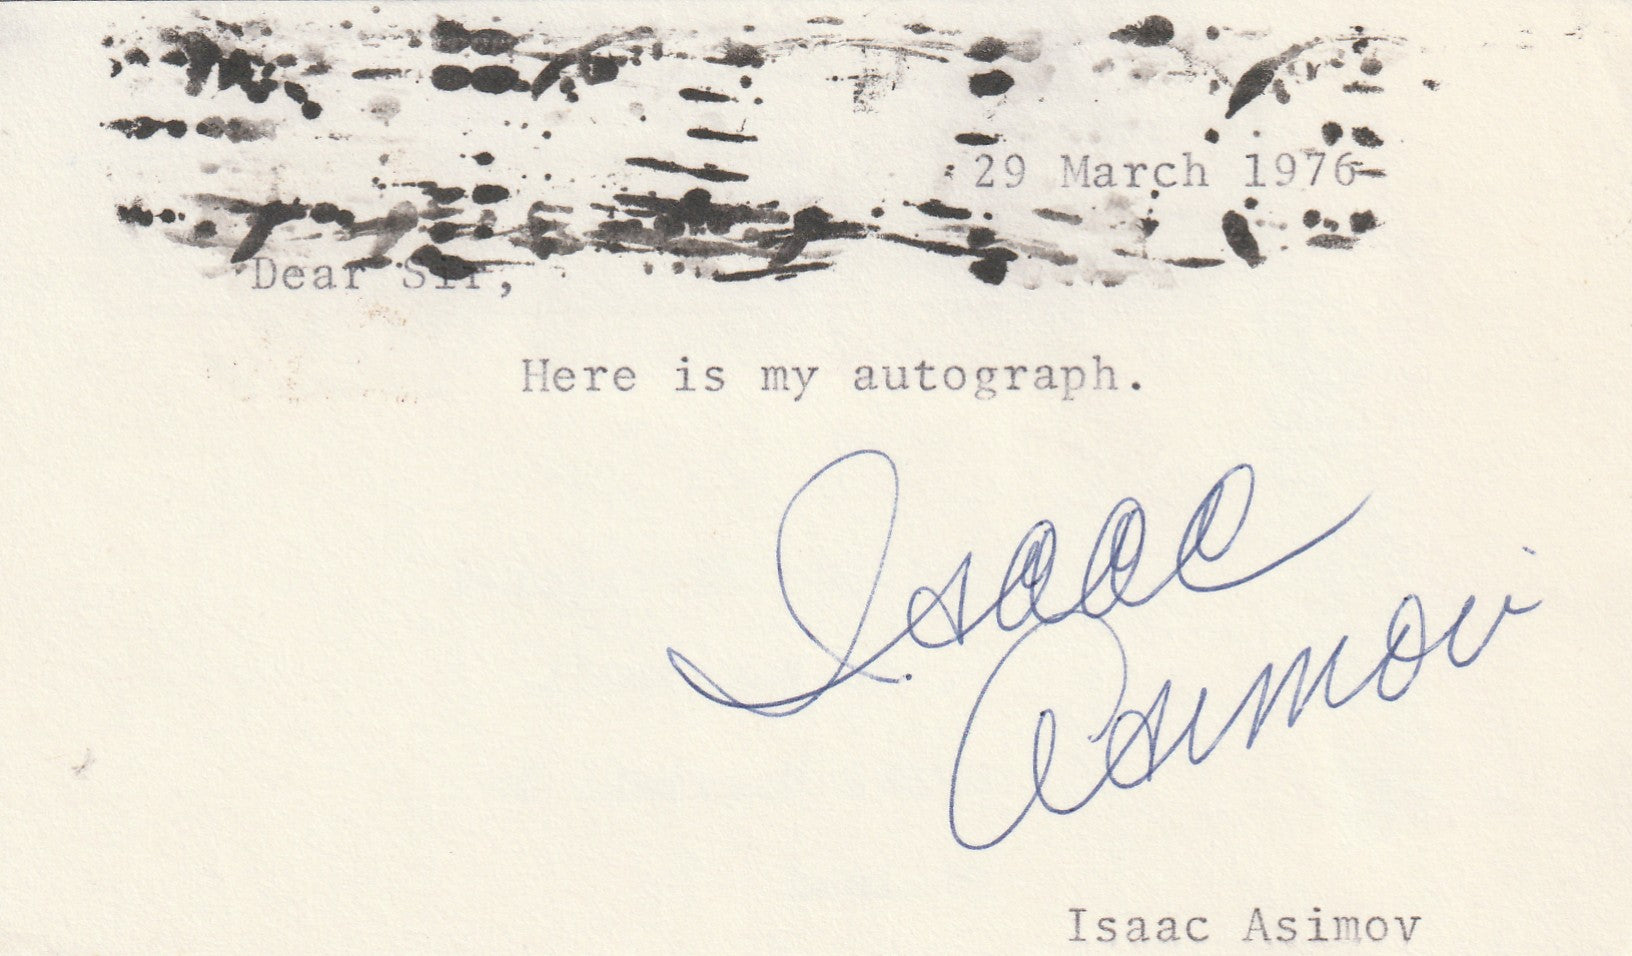 29 March 1976
Dear Sir,
Here is my autograph.
Isaac
Asimov
Isaac Asimov